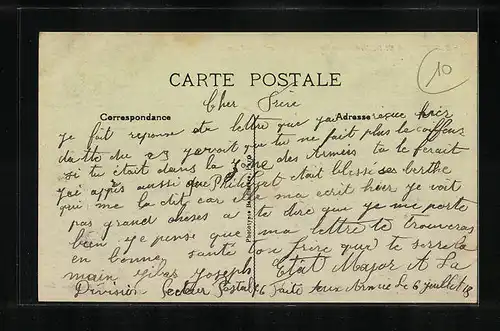 10
CARTE POSTALE
Cher Frère
Correspondance Adresse
je fait reponse a ta lettre que j'ai reçue hier
datte du 23 je voit que tu ne fait plus la
si tu était dans la zone des Armées tu le ferait
j'ai appris aussi que était blessé ses berthe
qui me la dit car elle ma ecrit hier je voit
pas grand choses a te dire que je me porte
bien je pense que ma lettre te trouveras
en bonne santé ton frère que te serre la
main Joseph Etat Major A La
Division Secteur Postale 6 Faite aux Armée le 6 juillet 15